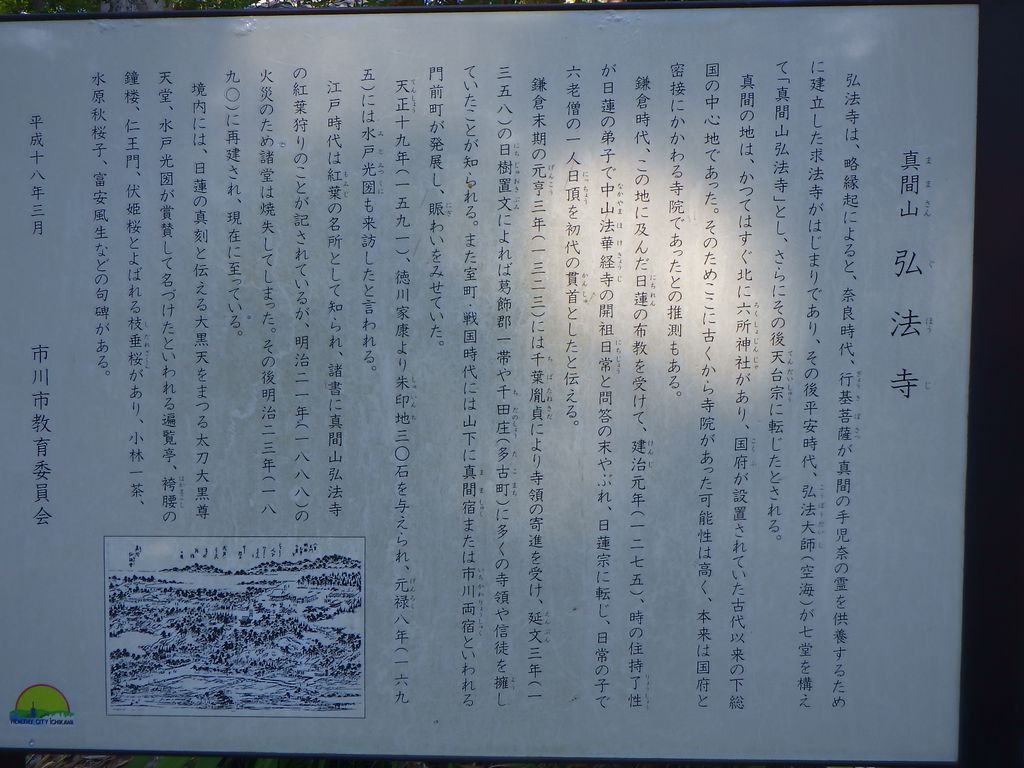 真間山 弘法寺
弘法寺は、略縁起によると、奈良時代、行基菩薩が真間の手児奈の霊を供養するため
に建立した求法寺がはじまりであり、その後平安時代、弘法大師(空海)が七堂を構え
て「真間山弘法寺」とし、さらにその後天台宗に転じたとされる。
真間の地は、かつてはすぐ北に六所神社があり、国府が設置されていた古代以来の下総
国の中心地であった。そのためここに古くから寺院があった可能性は高く、本来は国府と
密接にかかわる寺院であったとの推測もある。
鎌倉時代、この地に及んだ日蓮の布教を受けて、建治元年(一二七五)、時の住持了性
が日蓮の弟子で中山法華経寺の開祖日常と問答の末やぶれ、日蓮宗に転じ、日常の子で
六老僧の一人日頂を初代の貫首としたと伝える。
鎌倉末期の元亨三年(一三二三)には千葉胤貞により寺領の寄進を受け、延文三年(一
三五八)の日樹置文によれば葛飾郡一帯や千田庄(多古町)に多くの寺領や信徒を擁し
ていたことが知られる。また室町・戦国時代には山下に真間宿または市川両宿といわれる
門前町が発展し、賑わいをみせていた。
天正十九年(一五九一)、徳川家康より朱印地三〇石を与えられ、元禄八年(一六九
五)には水戸光圀も来訪したと言われる。
江戸時代は紅葉の名所として知られ、諸書に真間山弘法寺
の紅葉狩りのことが記されているが、明治二一年(一八八八)の
火災のため諸堂は焼失してしまった。その後明治二三年(一八
九〇)に再建され、現在に至っている。
境内には、日蓮の真刻と伝える大黒天をまつる太刀大黒尊
天堂、水戸光圀が賞賛して名づけたといわれる遍覧亭、袴腰の
鐘楼、仁王門、伏姫桜とよばれる枝垂桜があり、小林一茶、
水原秋桜子、富安風生などの句碑がある。
平成十八年三月
市川市教育委員会
HEALTHY CITY ICHIKAWA